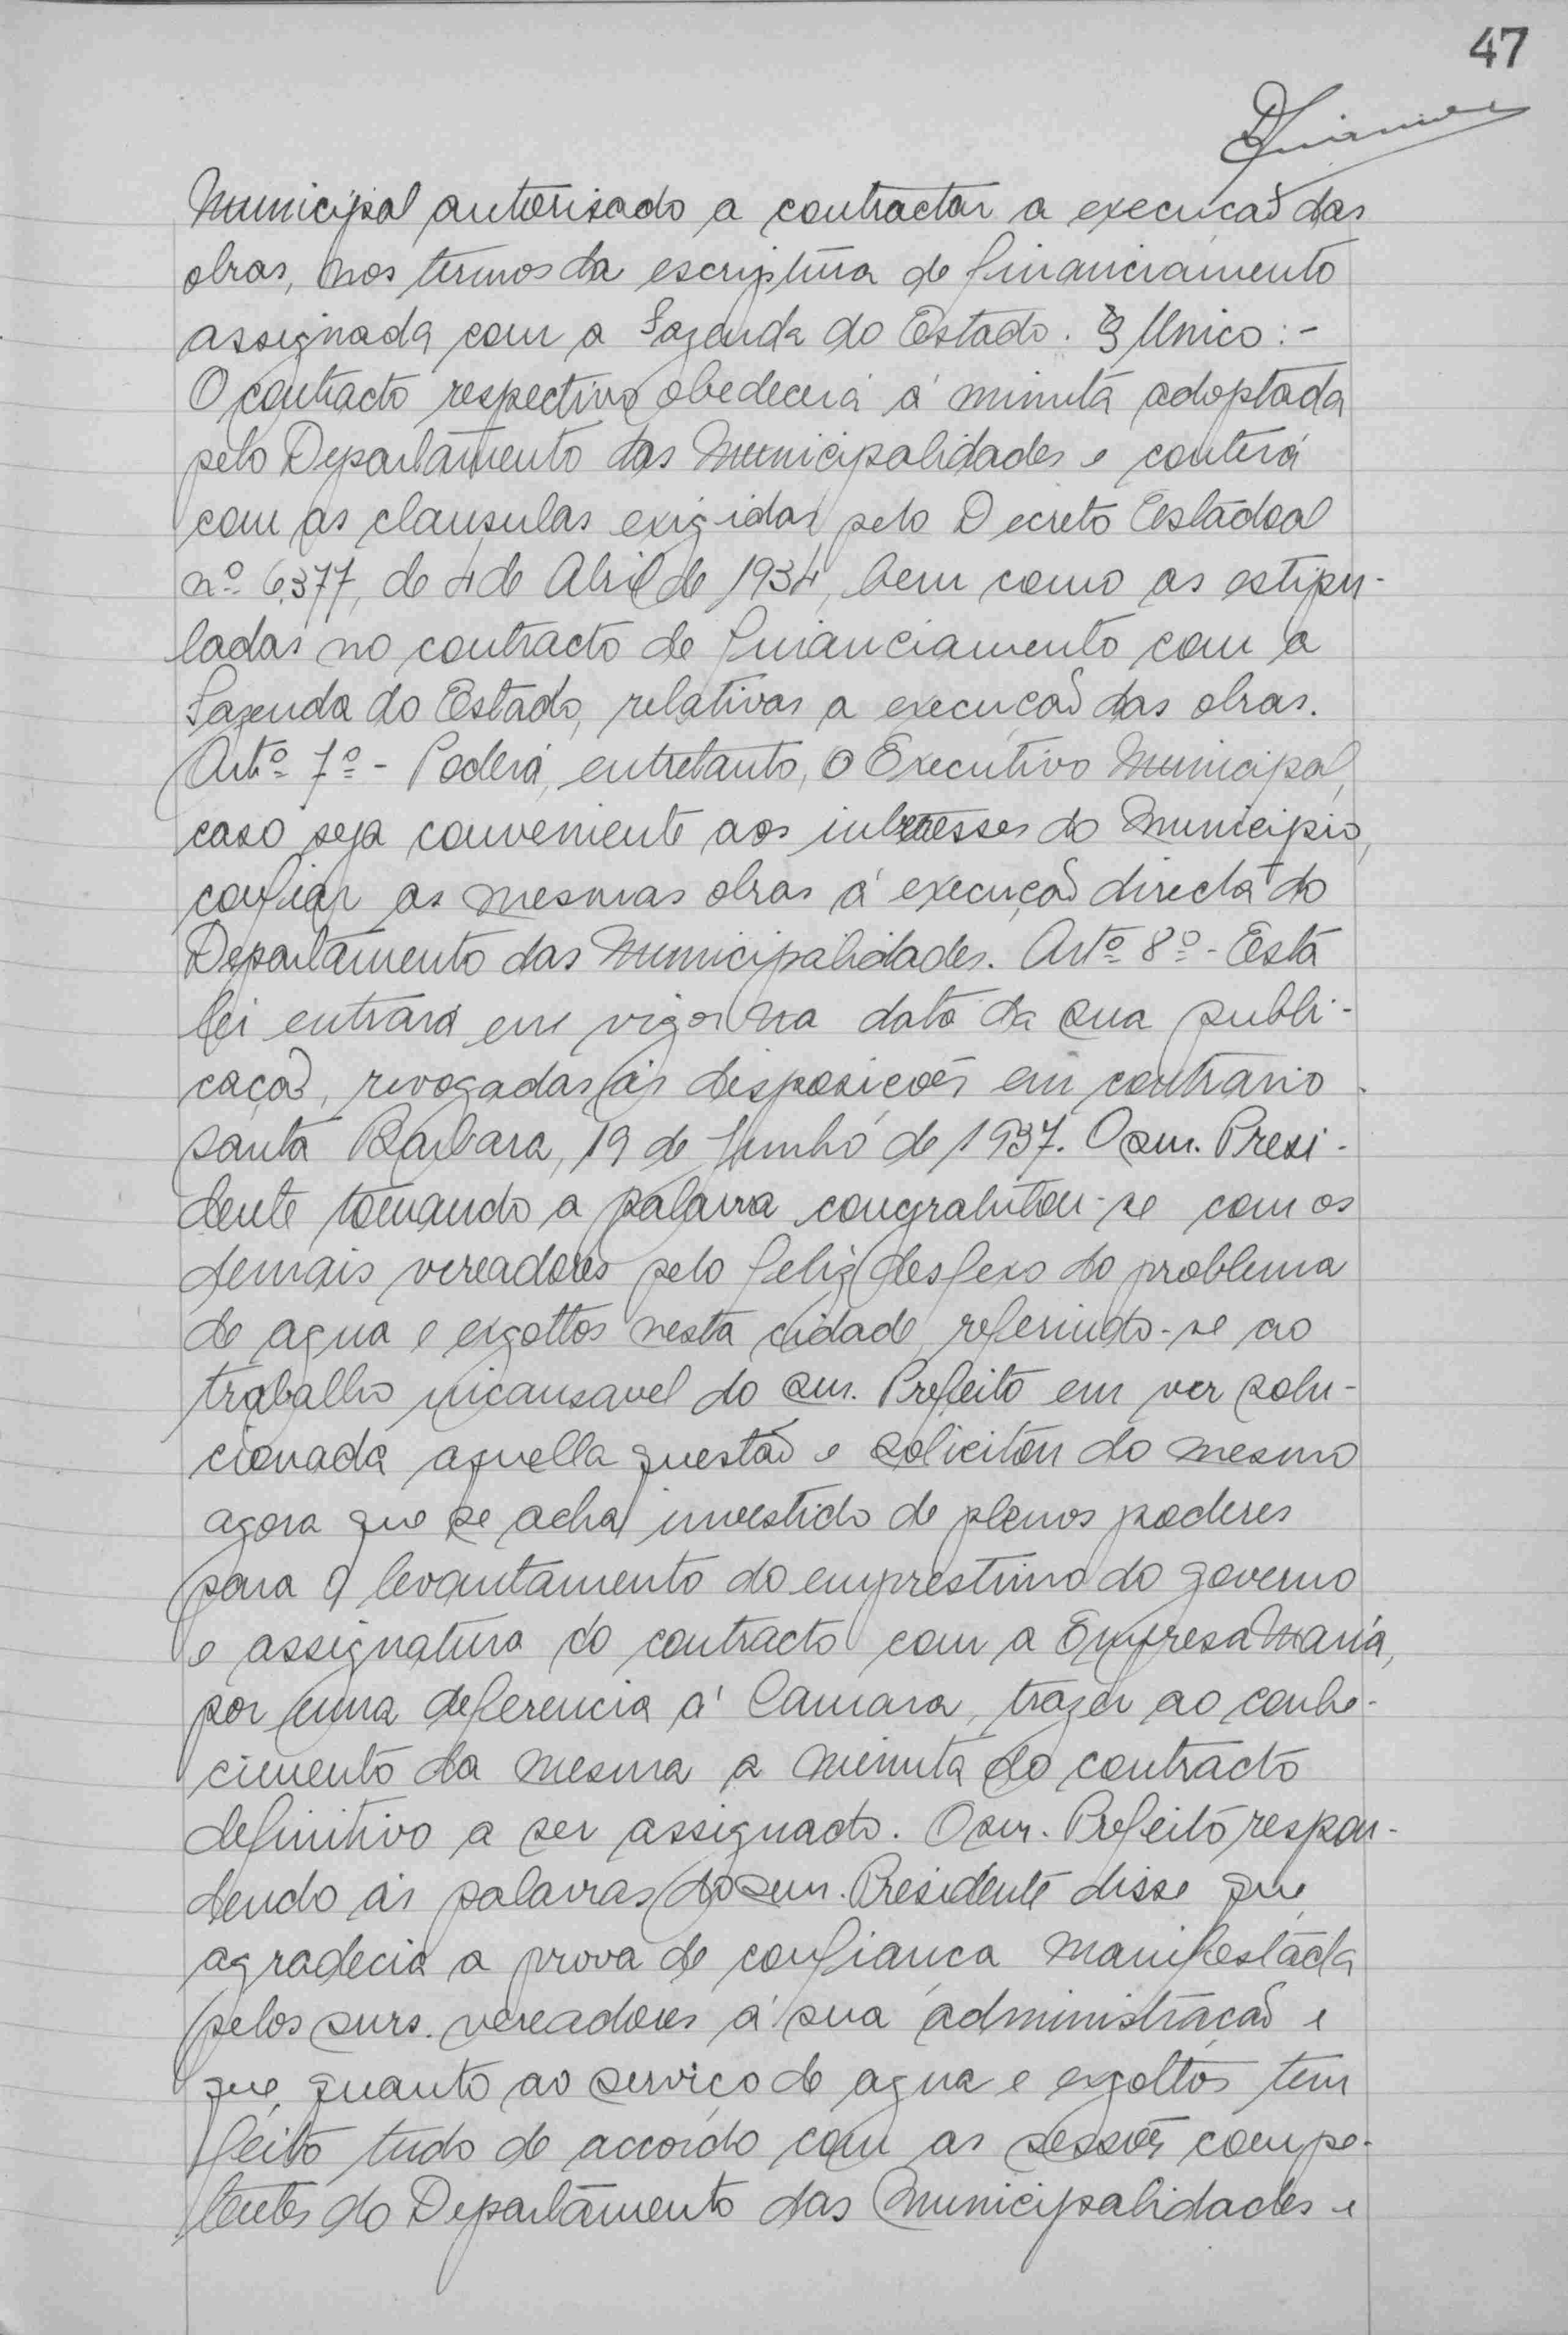 47
Municipal autorisado a contractar a execução das
obras, nos termos da escriptura de financiamento
assignada com a Fazenda do Estado. § Unico:-
O contracto respectivo obedecerá á minuta adoptada
pelo Departamento das Municipalidades e conterá
com as clausulas exigidas pelo Decreto Estadoal
nº 6.377, de 4 de Abril de 1934, bem como as estipu-
ladas no contracto de financiamento com a
Fazenda do Estado, relativas a execução das obras.
Artº 7º - Poderá, entretanto, o Executivo Municipal,
caso seja conveniente aos interesses do Municipio,
confiar as mesmas obras á execução directa do
Departamento das Municipalidades. Artº 8º - Esta
lei entrará em vigor na data da sua publi-
cação, revogadas as disposições em contrario.
Santa Barbara, 19 de Junho de 1937. O snr. Presi-
dente tomando a palavra congratulou-se com os
demais vereadores pelo feliz desfexo do problema
de agua e exgottos nesta cidade, referindo-se ao
trabalho incansavel do snr. Prefeito em ver solu-
cionada aquella questão e solicitou do mesmo
agora que se acha investido de plenos poderes
para o levantamento do emprestimo do governo
e assignatura do contracto com a Empresa Mauá,
por uma deferencia á Camara, trazer ao conhe-
cimento da mesma a minuta do contracto
definitivo a ser assignado. O snr. Prefeito respon-
dendo ás palavras do snr. Presidente disse que
agradecia a prova de confiança manifestada
pelos snrs. vereadores á sua administração e
que, quanto ao serviço de agua e exgottos tem
feito tudo de accordo com as sessões compe-
tentes do Departamento das Municipalidades e